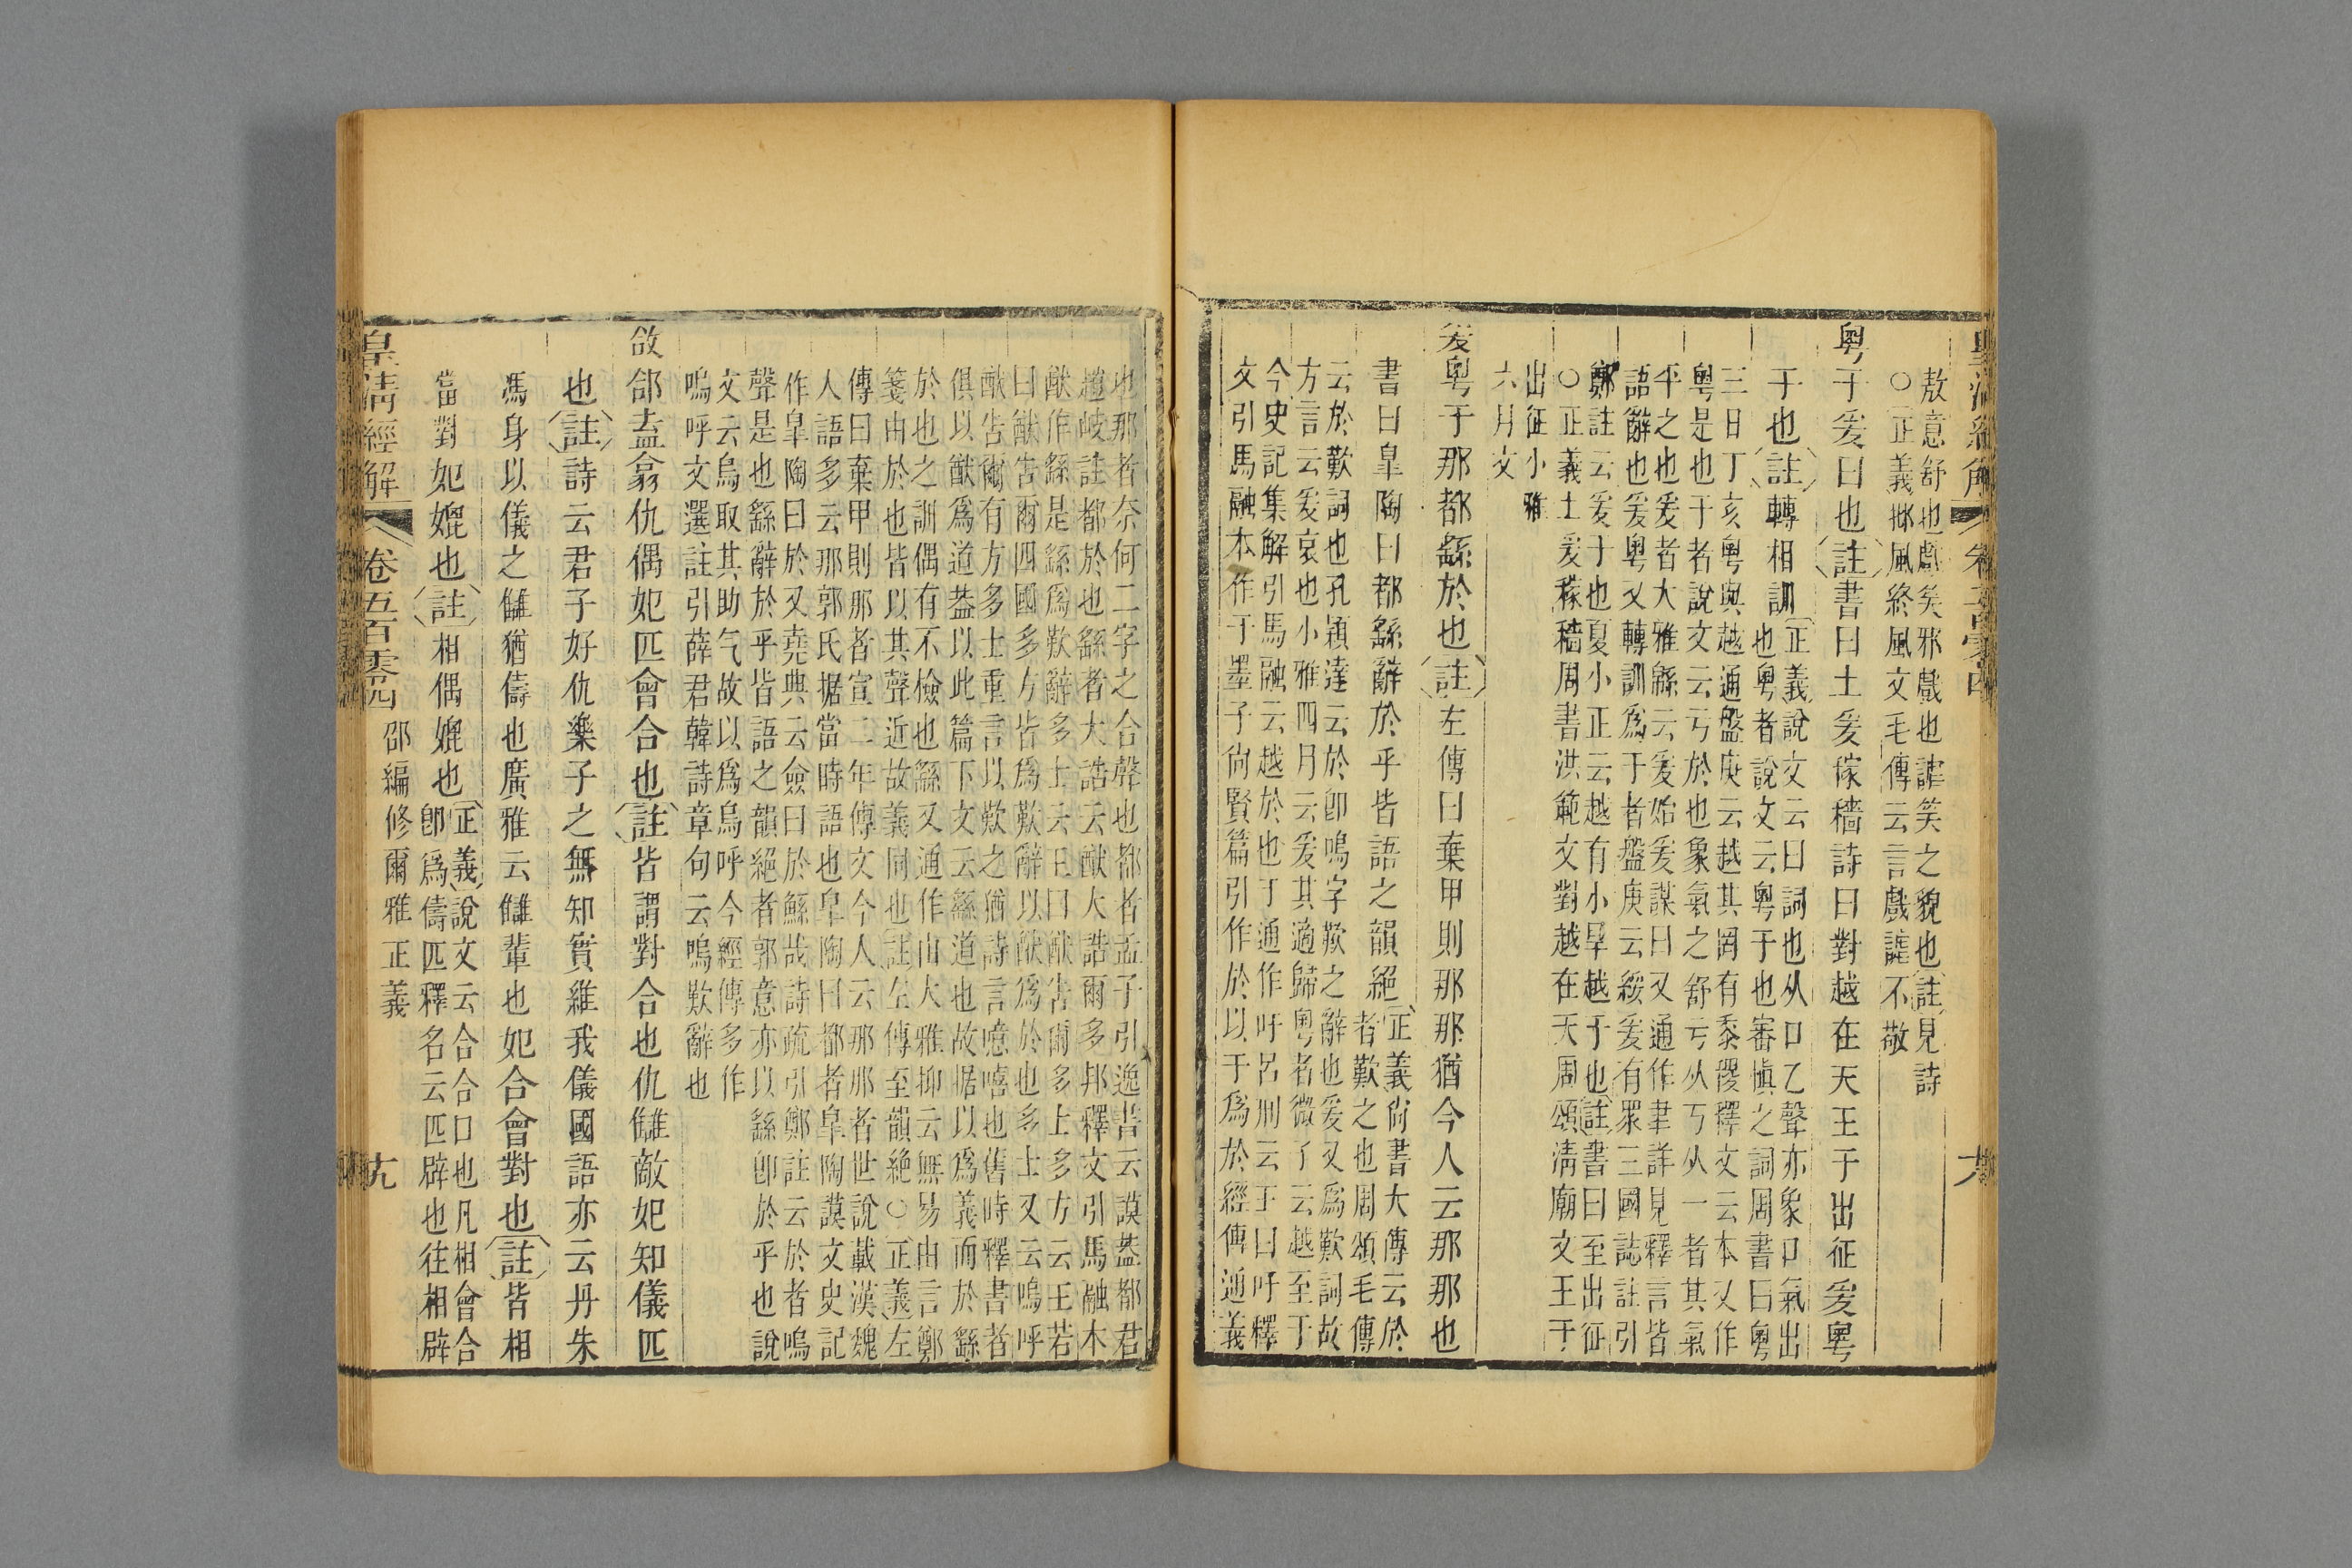 敖意舒也戲笑邪戲也謔笑之貌也註見詩
○正義邶風終風文毛傳云言戲謔不敬
粵于爰曰也註書曰土爰稼穡詩曰對越在天王于出征爰粵
于也註轉相訓正義說文云曰詞也从口乙聲亦象口氣出
也粵者說文云粵于也審愼之詞周書曰粵
三日丁亥粵與越通盤庚云越其罔有黍稷釋文云本又作
粵是也于者說文云亏於也象氣之舒亏从丂从一者其氣
平之也爰者大雅緜云爰始爰謀曰又通作聿詳見釋言皆
語辭也爰粵又轉訓爲于者盤庚云綏爰有眾三國誌註引
鄭註云爰于也夏小正云越有小旱越于也註書曰至出征
○正義土爰稼穡周書洪範文對越在天周頌淸廟文王于
出征小雅
六月文
爰粵于那都繇於也註左傳曰棄甲則那那猶今人云那那也
書曰皐陶曰都繇辭於乎皆語之韻絕正義尙書大傳云於
者歎之也周頌毛傳
云於歎詞也孔穎達云於卽嗚字歎之辭也爰又爲歎詞故
方言云爰哀也小雅四月云爰其適歸粵者微子云越至于
今史記集解引馬融云越於也丁通作吁呂刑云王曰吁釋
文引馬融本作于墨子尙賢篇引作於以于爲於經傳通義
也那者奈何二字之合聲也都者孟子引逸書云謨蓋都君
趙岐註都於也繇者大誥云猷大誥爾多邦釋文引馬融木
猷作繇是繇爲歎辭多士云王曰猷告爾多上多方云王若
曰猷告爾四國多方皆爲歎辭以猷爲於也多士又云嗚呼
猷告爾有方多士重言以歎之猶詩言噫嘻也舊時釋書者
俱以猷爲道蓋以此篇下文云繇道也故据以爲義而於繇
於也之訓偶有不檢也繇又通作由大雅抑云無易由言鄭
箋由於也皆以其聲近故義同也註左傳至韻絕○正義左
傳曰棄甲則那者宣二年傳文今人云那那者世說載漢魏
人語多云那郭氏据當時語也皐陶曰都者皐陶謨文史記
作皐陶曰於又堯典云僉曰於鯀哉詩疏引鄭註云於者嗚
聲是也繇辭於乎皆語之韻絕者郭意亦以繇卽於乎也說
文云烏取其助气故以爲烏呼今經傳多作
嗚呼文選註引薛君韓詩章句云嗚歎辭也
敆郃盍翕仇偶妃匹會合也註皆謂對合也仇讎敵妃知儀匹
也註詩云君子好仇樂子之無知實維我儀國語亦云丹朱
馮身以儀之讎猶儔也廣雅云讎輩也妃合會對也註皆相
當對妃媲也註相偶媲也正義說文云合合口也凡相會合
卽爲儔匹釋名云匹辟也往相辟
皇淸經解 卷五百零四 邵編修爾雅正義 十九